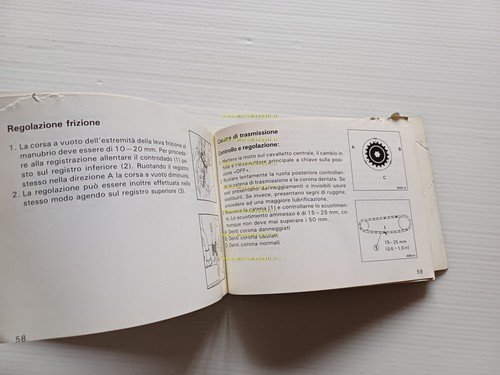 Regolazione frizione
1. La corsa a vuoto dell'estremità della leva frizione al
manubrio deve essere di 10-20 mm. Per procede-
re alla registrazione allentare il controdado (1) po-
sto sul registro inferiore (2). Ruotando il registro
stesso nella direzione A la corsa a vuoto diminuirà.
2. La regolazione può essere inoltre effettuata nello
stesso modo agendo sul registro superiore (3).
58
Catena di trasmissione
Controllo e regolazione:
Mettere la moto sul cavalletto centrale, il cambio in
folle e l'interruttore principale a chiave sulla posi-
zione «OFF».
Ruotare lentamente la ruota posteriore controllan-
do catena di trasmissione e la corona dentata. Se
presentano danneggiamenti o invisibili usure
sostituirle. Se invece, presentano segni di ruggine,
procedere ad una maggiore lubrificazione.
la catena (1) e controllarne lo scuotimen-
to. Lo scuotimento ammesso è di 15÷25 mm, co-
munque non deve mai superare i 50 mm.
Denti corona danneggiati
Denti corona usurati
Denti corona normali
A
B
C
1
15-25 mm
(0.6-1.0 in)
59
www.motomanuali.it